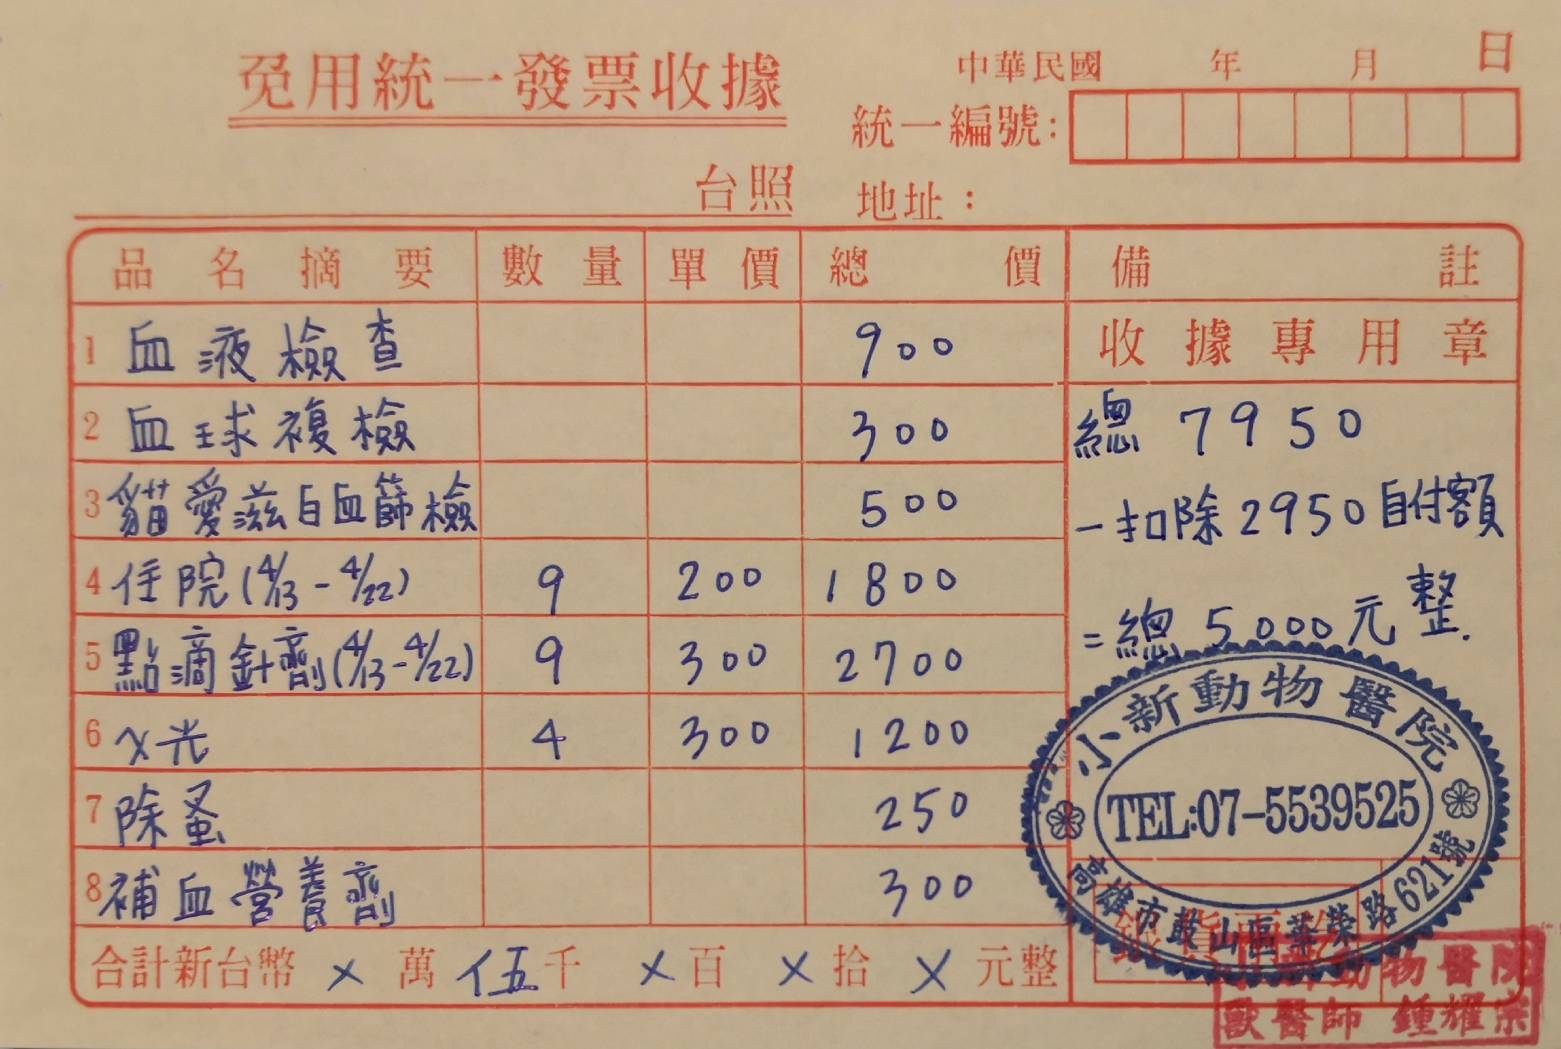 免用統一發票收據
中華民國 年 月 日
統一編號:
台照
地址:
品名摘要 數量 單價 總價 備註
1 血液檢查 900
2 血球複檢 300
3 貓愛滋白血篩檢 500
4 住院(4/13-4/22) 9 200 1800
5 點滴針劑(4/13-4/22) 9 300 2700
6 X光 4 300 1200
7 除蚤 250
8 補血營養劑 300
合計新台幣 X 萬 伍 千 X 百 X 拾 X 元整
收據專用章
總 7950
-扣除2950自付額
=總 5000元整.
小新動物醫院
TEL:07-5539525
高雄市鼓山區華榮路621號
動物醫院
獸醫師 鍾耀宗